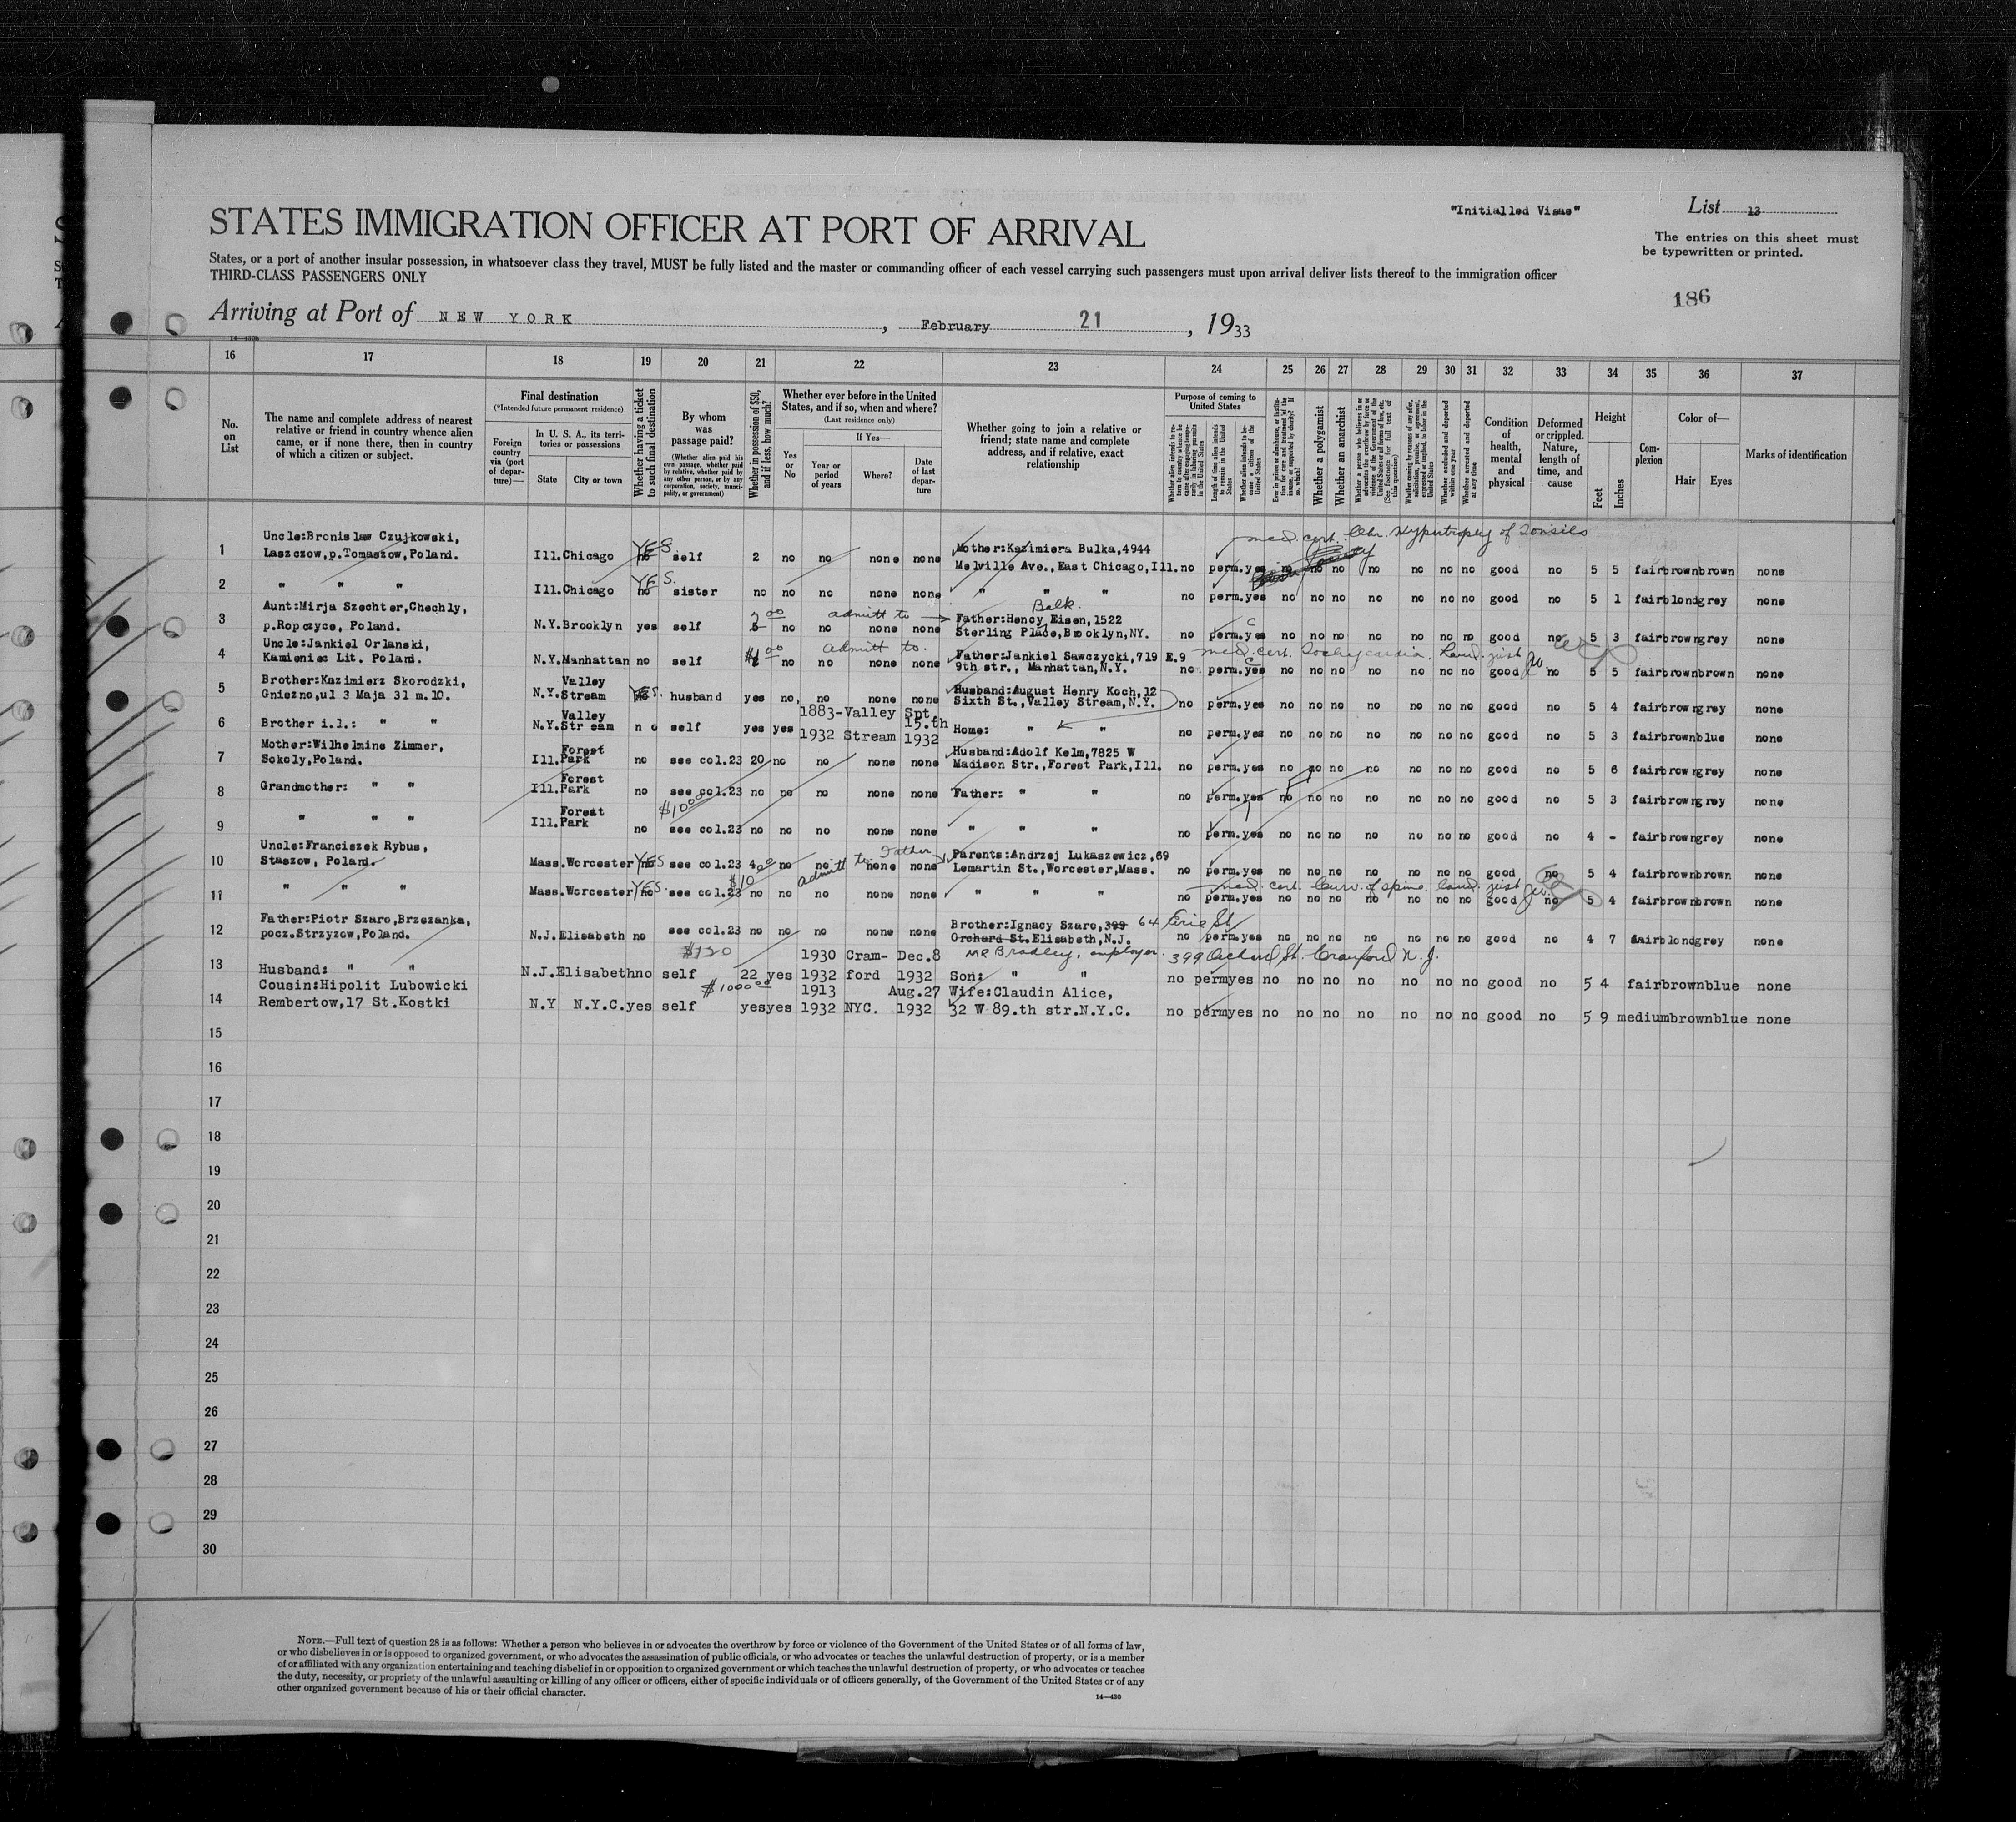 "Initialled Visas"
List 13
The entries on this sheet must
be typewritten or printed.
STATES IMMIGRATION OFFICER AT PORT OF ARRIVAL
States, or a port of another insular possession, in whatsoever class they travel, MUST be fully listed and the master or commanding officer of each vessel carrying such passengers must upon arrival deliver lists thereof to the immigration officer
THIRD-CLASS PASSENGERS ONLY
186
Arriving at Port of NEW YORK, February 21, 1933
14—430b
16 17 18 19 20 21 22 23 24 25 26 27 28 29 30 31 32 33 34 35 36 37
No. on List
The name and complete address of nearest relative or friend in country whence alien came, or if none there, then in country of which a citizen or subject.
Final destination
(*Intended future permanent residence)
Foreign country via (port of departure)—
In U. S. A., its territories or possessions
State
City or town
Whether having a ticket to such final destination
By whom was passage paid?
(Whether alien paid his own passage, whether paid by relative, whether paid by any other person, or by any corporation, society, municipality, or government)
Whether in possession of $50, and if less, how much?
Whether ever before in the United States, and if so, when and where?
(Last residence only)
Yes or No
If Yes—
Year or period of years
Where?
Date of last departure
Whether going to join a relative or friend; state name and complete address, and if relative, exact relationship
Purpose of coming to United States
Whether alien intends to return to country whence he came after engaging temporarily in laboring pursuits in the United States
Length of time alien intends to remain in the United States
Whether alien intends to become a citizen of the United States
Ever in prison or almshouse, or institution for care and treatment of the insane, or supported by charity? If so, which?
Whether a polygamist
Whether an anarchist
Whether a person who believes in or advocates the overthrow by force or violence of the Government of the United States or all forms of law, etc. (See footnote for full text of this question)
Whether coming by reasons of any offer, solicitation, promise, or agreement, expressed or implied, to labor in the United States
Whether excluded and deported within one year
Whether arrested and deported at any time
Condition of health, mental and physical
Deformed or crippled. Nature, length of time, and cause
Height
Feet
Inches
Complexion
Color of—
Hair
Eyes
Marks of identification
med. cert. Chr. Hypertrophy of Tonsils
Uncle:Bronislaw Czujkowski,
1 Laszczow,p.Tomaszow,Poland. Ill.Chicago no YES self 2 no no none none Mother:Kazimiera Bulka,4944
Melville Ave.,East Chicago,Ill. no perm.yes no no no no no no no good no 5 5 fair brown brown none
2 " " " Ill.Chicago no YES. sister no no no none none " " " no perm.yes no no no no no no no good no 5 1 fair blond grey none
Aunt:Mirja Szechter,Chechly,
admitt to Balk.
3 p.Ropczyce, Poland. N.Y.Brooklyn yes self no no none none Father:Hency Eisen,1522
Sterling Place,Brooklyn,NY. no perm.yes no no no no no no no good no 5 3 fair brown grey none
Uncle:Jankiel Orlanski,
admitt to. med. cert. Tachycardia.
4 Kamieniec Lit. Poland. N.Y.Manhattan no self no no none none Father:Jankiel Sawczycki,719 E.9
9th str., Manhattan,N.Y. no perm.yes no no no no no no no good no 5 5 fair brown brown none
Brother:Kazimierz Skorodzki,
5 Gniezno,ul 3 Maja 31 m.10. N.Y. Valley Stream YES. husband yes no, no none none Husband:August Henry Koch,12
Sixth St.,Valley Stream,N.Y. no perm.yes no no no no no no no good no 5 4 fair brown grey none
6 Brother i.l.: " " N.Y. Valley Str eam n o self yes yes 1883-1932 Valley Stream Spt. 15.th 1932 Home: " " no perm.yes no no no no no no no good no 5 3 fair brown blue none
Mother:Wilhelmine Zimmer,
7 Sokoly,Poland. Ill. Forest Park no see col.23 20 no no none none Husband:Adolf Kelm,7825 W
Madison Str.,Forest Park,Ill. no perm.yes no no no no no no no good no 5 6 fair brown grey none
8 Grandmother: " " Ill. Forest Park no see col.23 no no no none none Father: " " no perm.yes no no no no no no no good no 5 3 fair brown grey none
9 " " " Ill. Forest Park no see col.23 no no no none none " " " no perm.yes no no no no no no no good no 4 - fair brown grey none
Uncle:Franciszek Rybus,
admitt to Father
10 Staszow, Poland. Mass.Worcester no YES see col.23 4 no no none none Parents:Andrzej Lukaszewicz,69
Lemartin St.,Worcester,Mass. no perm.yes no no no no no no no good no 5 4 fair brown brown none
med. cert. Curv. of spine.
11 " " " Mass.Worcester no YES. see col.23 $10 no no no none none " " " no perm.yes no no no no no no no good no 5 4 fair brown brown none
Father:Piotr Szaro,Brzezanka,
12 pocz.Strzyzow,Poland. N.J.Elisabeth no see col.23 no no no none none Brother:Ignacy Szaro,399 64 Erie St.
Orchard St.Elisabeth,N.J. no perm.yes no no no no no no no good no 4 7 fair blond grey none
$120 Mr Bradley, employer. 399 Orchard St. Cranford N.J.
13 Husband: " " N.J.Elisabeth no self 22 yes 1930 1932 Cramford Dec.8 1932 Son: " " no perm yes no no no no no no no good no 5 4 fair brown blue none
Cousin:Hipolit Lubowicki
$1000.00
14 Rembertow,17 St.Kostki N.Y N.Y.C. yes self yes yes 1913 1932 NYC. Aug.27 1932 Wife:Claudin Alice,
32 W 89.th str.N.Y.C. no perm yes no no no no no no no good no 5 9 medium brown blue none
15
16
17
18
19
20
21
22
23
24
25
26
27
28
29
30
NOTE.—Full text of question 28 is as follows: Whether a person who believes in or advocates the overthrow by force or violence of the Government of the United States or of all forms of law,
or who disbelieves in or is opposed to organized government, or who advocates the assassination of public officials, or who advocates or teaches the unlawful destruction of property, or is a member
of or affiliated with any organization entertaining and teaching disbelief in or opposition to organized government or which teaches the unlawful destruction of property, or who advocates or teaches
the duty, necessity, or propriety of the unlawful assaulting or killing of any officer or officers, either of specific individuals or of officers generally, of the Government of the United States or of any
other organized government because of his or their official character.
14—430